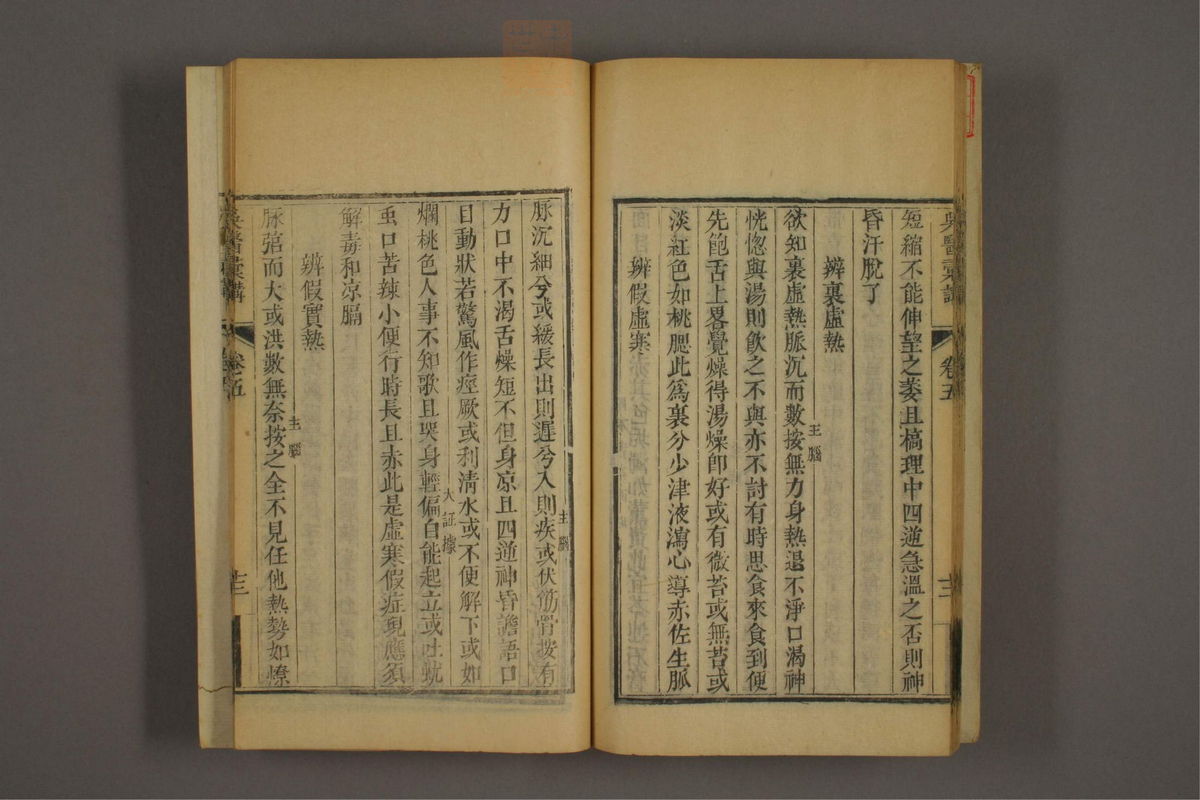 吳醫彙講 卷五 十二
短縮不能伸望之萎且槁理中四逆急溫之否則神
昏汗脫了
辨裏虛熱
主腦
欲知裏虛熱脈沉而數按無力身熱退不淨口渴神
恍惚與湯則飲之不與亦不討有時思食來食到便
先飽舌上畧覺燥得湯燥卽好或有微苔或無苔或
淡紅色如桃腮此爲裏分少津液瀉心導赤佐生脈
辨假虛寒
主腦
脈沉細兮或緩長出則遲兮入則疾或伏筋骨按有
力口中不渴舌燥短不但身凉且四逆神昏譫語口
目動狀若驚風作痙厥或利清水或不便解下或如
大証據
爛桃色人事不知歌且哭身輕偏自能起立或吐蚘
虫口苦辣小便行時長且赤此是虛寒假症現應須
解毒和凉膈
辨假實熱
主腦
脈弦而大或洪數無奈按之全不見任他熱勢如燎
吳醫彙講 卷五 十三